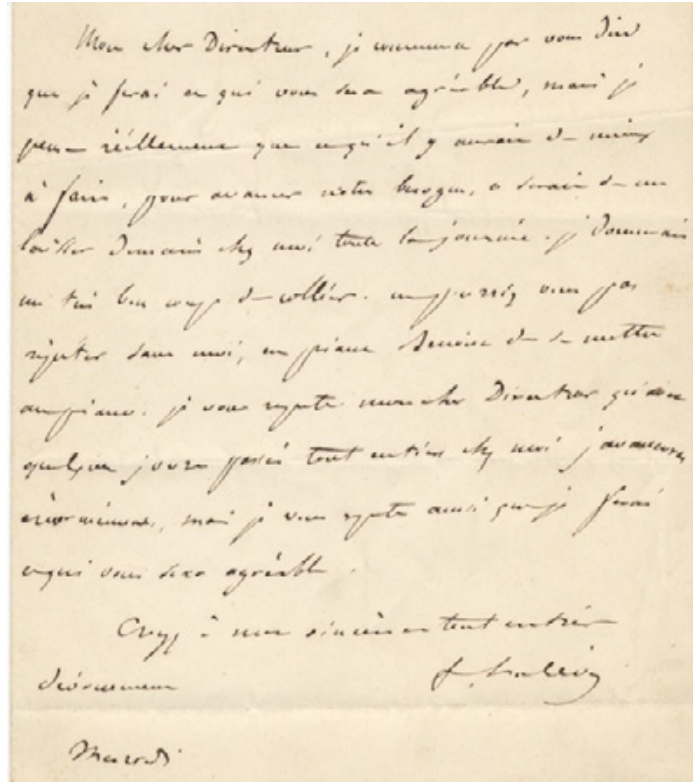 Mon cher Directeur, je commence par vous dire
que je ferai ce qui vous sera agréable, mais je
pense réellement que ce qu'il y aurait de mieux
à faire, pour avancer notre besogne, ce serait de me
laisser demain chez moi toute la journée. je donnerais
un très bon coup de collier. ne pourriez vous pas
répéter sans moi, en priant de se mettre
au piano. je vous répète mon cher Directeur qu'avec
quelques jours passés tout entiers chez moi j'avancerai
énormément, mais je vous répète aussi que je ferai
ce qui vous sera agréable.
Croyez à mon sincère et tout entier
dévouement
F. Halévy
Mercredi